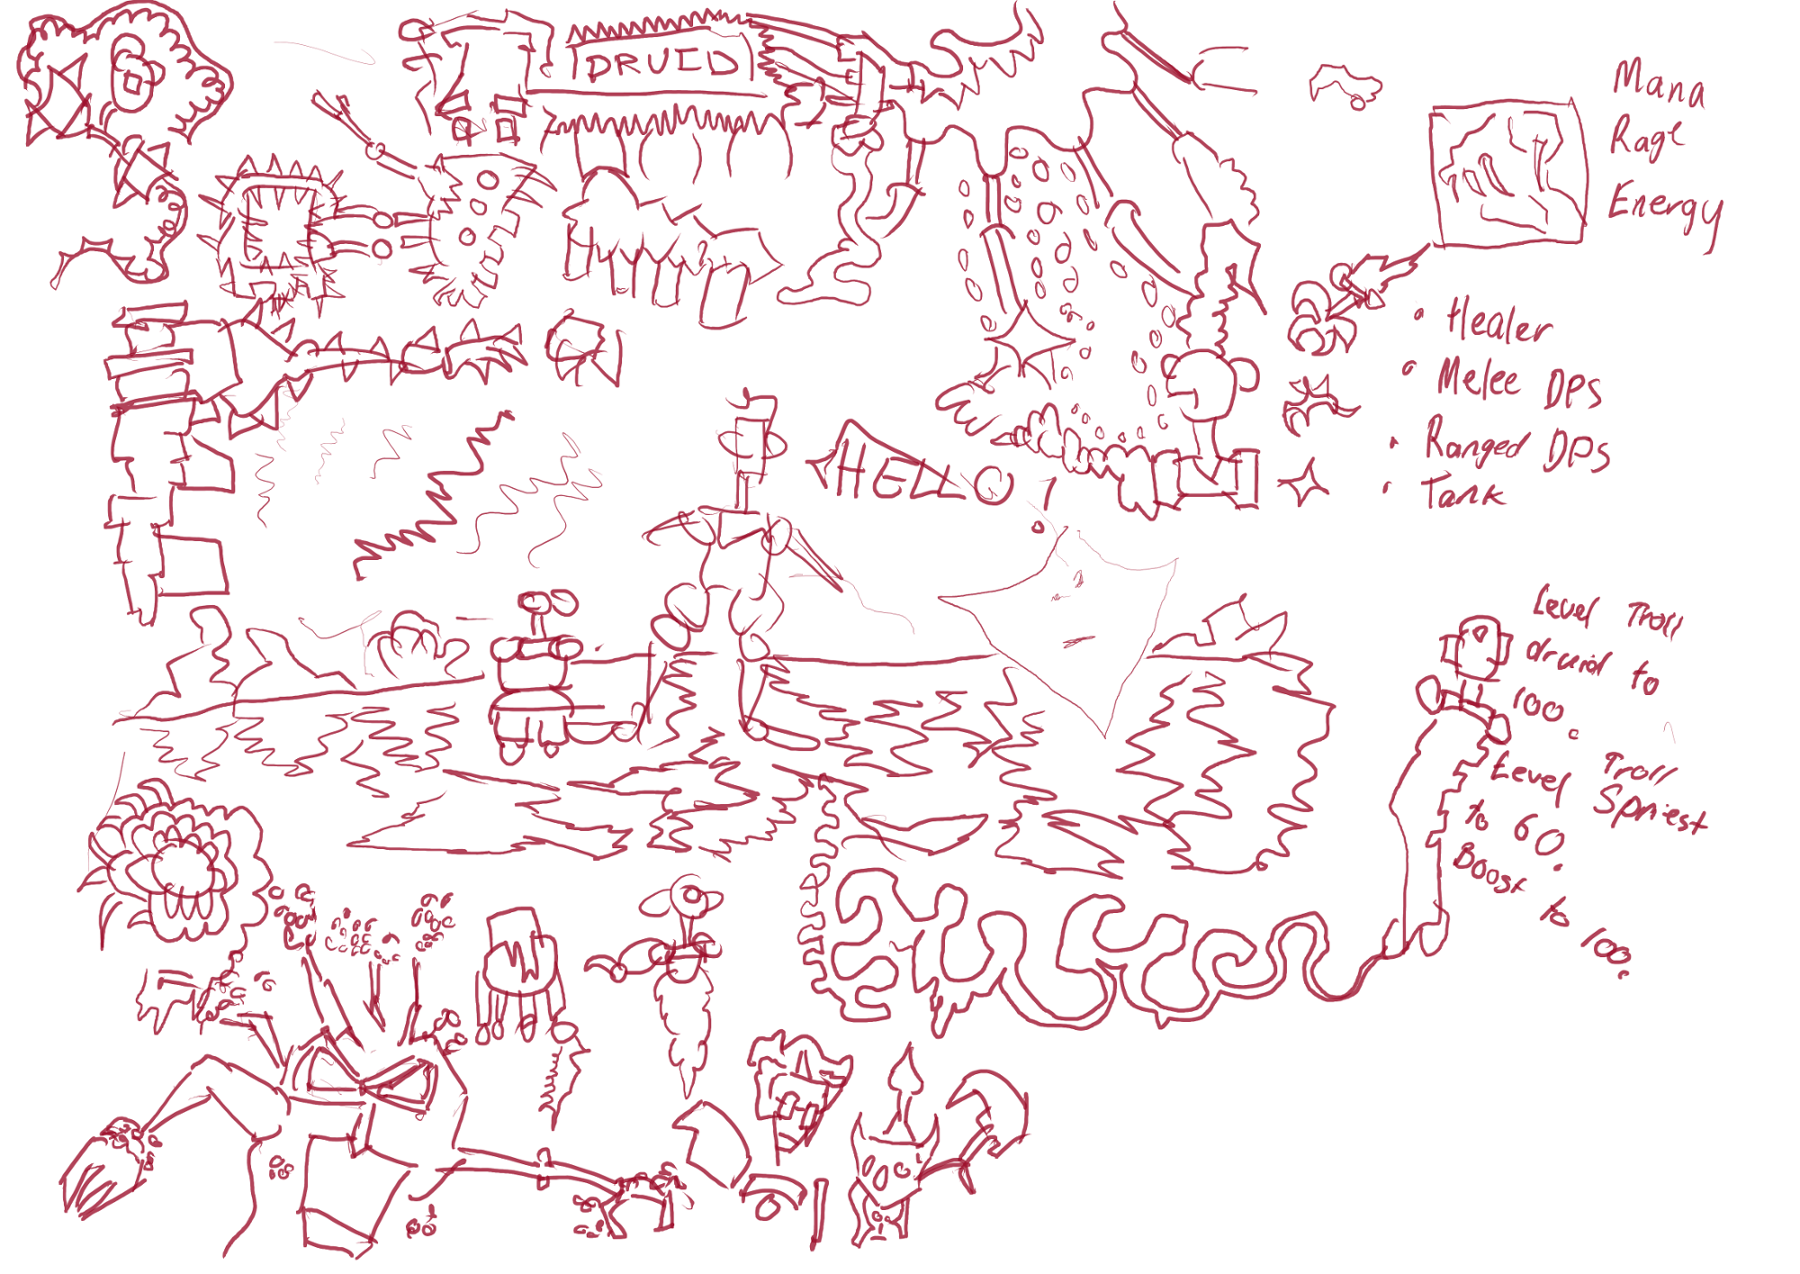 DRUID
Mana
Rage
Energy
• Healer
• Melee DPS
• Ranged DPS
• Tank
HELLO!
Level Troll
druid to
100.
Level Troll
Spriest
to 60.
Boost to 100.